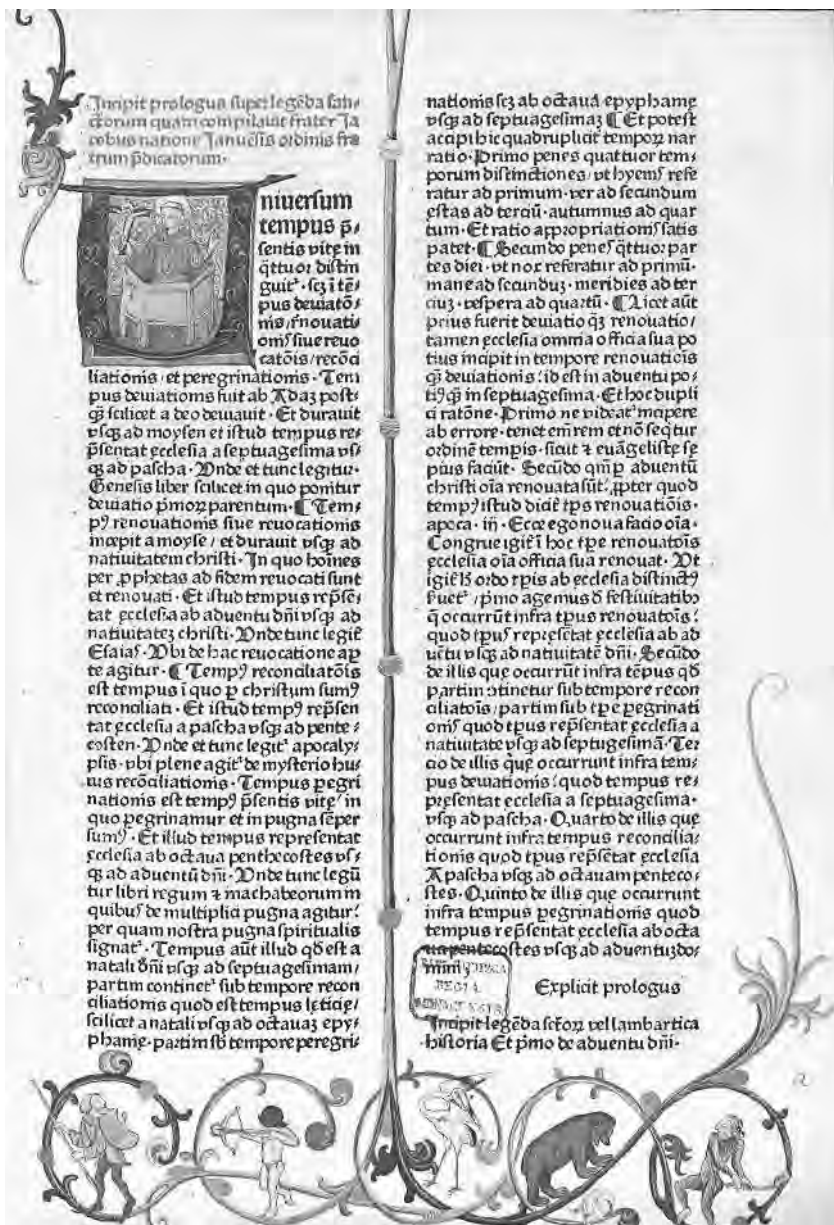 Incipit prologus super legēda san⸗
ctorum quam compilauit frater Ja
cobus natione Januēsis ordinis fra
trum p̄dicatorum·
Uniuersum
tempus p̄⸗
sentis vitę in
q̄ttuor distin
guit᷑· scꝫ ī tē⸗
pus deuiatōĩ⸗
nis/r̄nouati⸗
onis siue reuo
catōis/recōci
liationis/et peregrinationis· Tem
pus deuiationis fuit ab Adaꝫ post⸗
q̄ꝫ scilicet a deo deuiauit· Et durauit
vsqꝫ ad moysen et istud tempus re⸗
p̄sentat ęcclesia a septuagesima vs⸗
qꝫ ad pascha· Vnde et tunc legitur·
Genesis liber scilicet in quo ponitur
deuiatio p̄moꝝ parentum· ¶ Tem⸗
pꝰ renouationis siue reuocationis
incepit a moyse/et durauit vsqꝫ ad
natiuitatem christi· In quo hoīnes
per ꝓphetas ad fidem reuocati sunt
et renouati· Et istud tempus rep̄sē⸗
tat ęcclesia ab aduentu dn̄i vsqꝫ ad
natiuitateꝫ christi· Vnde tunc legit᷑
Esaias· Vbi de hac reuocatione ap
te agitur· ¶ Tempꝰ reconciliatōis
est tempus ī quo ꝑ christum sumꝰ
reconciliati· Et istud tempꝰ rep̄sen
tat ęcclesia a pascha vsqꝫ ad pente⸗
costen· Vnde et tunc legit᷑ apocaly⸗
psis· vbi plene agit᷑ de mysterio hu⸗
ius recōciliationis· Tempus ꝑegri
nationis est tempꝰ p̄sentis vitę/in
quo ꝑegrinamur et in pugna sēper
sumꝰ· Et illud tempus representat
ęcclesia ab octaua penthecostes vs⸗
qꝫ ad aduentū dn̄i· Vnde tunc legū
tur libri regum ⁊ machabeorum in
quibus de multiplici pugna agitur:
per quam nostra pugna spiritualis
signat᷑· Tempus aūt illud qd̄ est a
natali dn̄i vsqꝫ ad septuagesimam/
partim continet᷑ sub tempore recon
ciliationis quod est tempus lęticię/
scilicet a natali vsqꝫ ad octauaꝫ epy⸗
phanię· partim sb̄ tempore peregri⸗
nationis scꝫ ab octaua epyphanię
vsqꝫ ad septuagesimaꝫ ¶ Et potest
accipi hic quadruplicit᷑ tempoꝝ nar
ratio· Primo penes quattuor tem⸗
porum distinctiones/vt hyems refe
ratur ad primum· ver ad secundum
ęstas ad terciū· autumnus ad quar
tum· Et ratio appropriationis satis
patet· ¶ Secundo penes q̄ttuor par
tes diei· vt nox referatur ad primū·
mane ad secunduꝫ· meridies ad ter
ciuꝫ· vespera ad quartū· ¶ Licet aūt
prius fuerit deuiatio qꝫ renouatio/
tamen ęcclesia omnia officia sua po
tius incipit in tempore renouatiōis
q̄ꝫ deuiationis: id est in aduentu po⸗
tiꝰ q̄ꝫ in septuagesima· Et hoc dupli
ci ratōne· Primo ne videat᷑ incipere
ab errore· tenet em̄ rem et nō seq̄tur
ordinē tempis· sicut ⁊ euāgelistę sę
pius faciūt· Secūdo qm̄ ꝑ aduentū
christi oīa renouata sūt· ꝓpter quod
tempꝰ istud dicit᷑ tp̄s renouatiōis·
apoca· iij· Ecce ego noua facio oīa·
Congrue igit᷑ ī hoc tp̄e renouatōis
ecclesia oīa officia sua renouat· Vt
igit᷑ ordo tp̄is ab ęcclesia distinctꝰ
seruet᷑/p̄mo agemus d̄ festiuitatibꝰ
q̄ occurrūt infra tp̄us renouatōis:
quod tp̄us representat ęcclesia ab ad
uētu vsqꝫ ad natiuitatē dn̄i· Secūdo
de illis quę occurrūt infra tēpus qd̄
partim ꝯtinetur sub tempore recon
ciliatōis/partim sub tp̄e ꝑegrinati
onis quod tp̄us rep̄sentat ęcclesia a
natiuitate vsqꝫ ad septuagesimā· Ter
cio de illis quę occurrunt infra tem⸗
pus deuiationis: quod tempus re⸗
pręsentat ęcclesia a septuagesima·
vsqꝫ ad pascha· Quarto de illis quę
occurrunt infra tempus reconcilia⸗
tionis quod tp̄us rep̄sētat ęcclesia
A pascha vsqꝫ ad octauam penteco⸗
stes· Quinto de illis quę occurrunt
infra tempus ꝑegrinationis quod
tempus rep̄sentat ęcclesia ab octa
ua pentecostes vsqꝫ ad aduentuꝫ do⸗
mini
REGIA
Explicit prologus
Incipit legēda sctōꝝ vel lambartica
historia Et p̄mo de aduentu dn̄i·
a